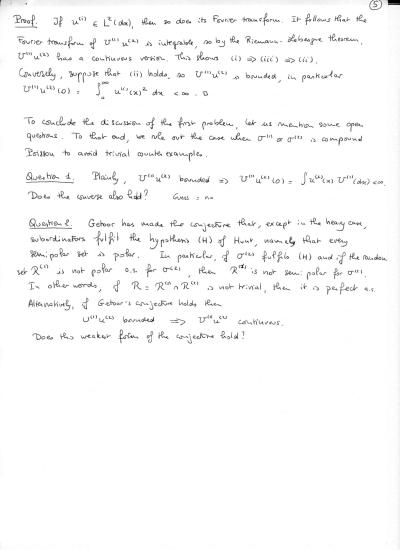 5
Proof. If u⁽ⁱ⁾ ∈ L²(dx), then so does its Fourier transform. It follows that the
Fourier transform of U⁽¹⁾u⁽²⁾ is integrable, so by the Riemann-Lebesgue theorem,
U⁽¹⁾u⁽²⁾ has a continuous version. This shows (i) ⇒ (iii) ⇒ (ii).
Conversely, suppose that (ii) holds, so U⁽¹⁾u⁽²⁾ is bounded, in particular
U⁽¹⁾u⁽²⁾(0) = ∫₀^∞ u⁽ⁱ⁾(x)² dx < ∞. □
To conclude the discussion of the first problem, let us mention some open
questions. To that end, we rule out the case when σ⁽¹⁾ or σ⁽²⁾ is compound
Poisson to avoid trivial counter examples.
Question 1. Plainly, U⁽¹⁾u⁽²⁾ bounded ⇒ U⁽¹⁾u⁽²⁾(0) = ∫u⁽²⁾(x) U⁽¹⁾(dx) < ∞.
Does the converse also hold? Guess = no
Question 2. Getoor has made the conjecture that, except in the heavy case,
subordinators fulfil the hypothesis (H) of Hunt, namely that every
semipolar set is polar. In particular, if σ⁽²⁾ fulfils (H) and if the random
set R⁽¹⁾ is not polar a.s. for σ⁽²⁾, then R⁽¹⁾ is not semipolar for σ⁽¹⁾.
In other words, if R = R⁽¹⁾ ∩ R⁽²⁾ is not trivial, then it is perfect a.s.
Alternatively, if Getoor's conjecture holds then
U⁽¹⁾u⁽²⁾ bounded ⇒ U⁽¹⁾u⁽²⁾ continuous.
Does this weaker form of the conjecture hold?